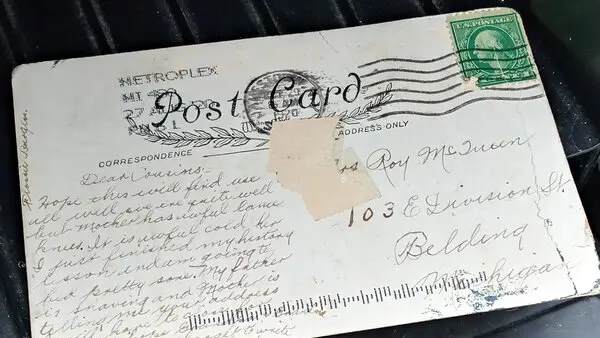 U.S. POSTAGE
METROPLEX
MI 4
27
Post Card
1920
CORRESPONDENCE
ADDRESS ONLY
Dear Cousins:-
Hope this will find use
all well we are quite well
but Mother has awful lame
knee. It is awful cold her
I just finished my history
lesson and am going to
bed pretty soon. My father
is shaving and Mother is
telling me your address
Roy McQueen
103 E Division St.
Belding
Michigan